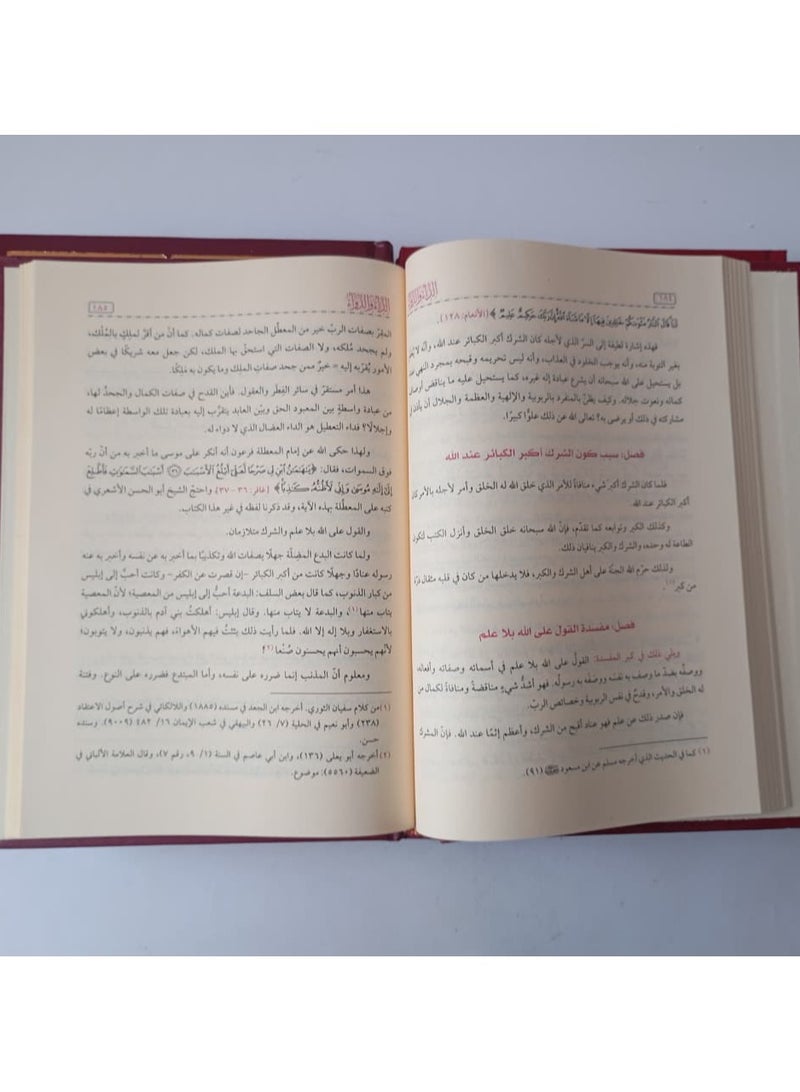 ١٨٤
الداء والدواء
لَنَا قَالَ النَّارُ مَثْوَاكُمْ خَالِدِينَ فِيهَا إِلَّا مَا شَاءَ اللَّهُ إِنَّ رَبَّكَ حَكِيمٌ عَلِيمٌ ﴾ (الأنعام: ١٢٨).
فهذه إشارة لطيفة إلى السرِّ الذي لأجله كان الشرك أكبر الكبائر عند الله، وأنَّه لا
بغير التوبة منه، وأنه يوجب الخلود في العذاب، وأنه ليس تحريمه وقبحه بمجرد النهي عنه
بل يستحيل على الله سبحانه أن يشرع عبادة إله غيره، كما يستحيل عليه ما يناقض أوصاف
كماله ونعوت جلاله. وكيف يظنُّ بالمنفرد بالربوبية والإلهية والعظمة والجلال أن يأذن في
مشاركته في ذلك أو يرضى به؟ تعالى الله عن ذلك علوًّا كبيرًا.
فصل: سبب كون الشرك أكبر الكبائر عند الله
فلما كان الشرك أكبر شيء منافاةً للأمر الذي خلق الله له الخلق وأمر لأجله بالأمر كان
أكبر الكبائر عند الله.
وكذلك الكبر وتوابعه كما تقدّم، فإنَّ الله سبحانه خلق الخلق وأنزل الكتب لتكون
الطاعة له وحده، والشرك والكبر ينافيان ذلك.
ولذلك حرّم الله الجنّة على أهل الشرك والكبر، فلا يدخلها من كان في قلبه مثقال ذرّة
من كبر(١).
فصل: مفسدة القول على الله بلا علم
ويلي ذلك في كبر المفسدة: القول على الله بلا علم في أسمائه وصفاته وأفعاله،
ووصفُه بضدِّ ما وصف به نفسَه ووصفَه به رسولُه. فهو أشدُّ شيءٍ مناقضةً ومنافاةً لكمال من
له الخلق والأمر، وقدحٌ في نفس الربوبية وخصائص الربّ.
فإن صدر ذلك عن علم فهو عناد أقبح من الشرك، وأعظم إثمًا عند الله. فإنَّ المشرك
(١) كما في الحديث الذي أخرجه مسلم عن ابن مسعود ﷺ (٩١).
الداء والدواء
١٨٥
المقِرّ بصفات الربّ خير من المعطّل الجاحد لصفات كماله. كما أنّ من أقرّ لملِكٍ بالمُلْك،
ولم يجحد مُلكه، ولا الصفات التي استحقّ بها الملك، لكن جعل معه شريكًا في بعض
الأمور يُقرّبه إليه = خيرٌ ممن جحد صفاتِ الملك وما يكون به مَلِكًا.
هذا أمر مستقرّ في سائر الفِطَر والعقول. فأين القدح في صفات الكمال والجحدُ لها،
من عبادة واسطةٍ بين المعبود الحق وبيْن العابد يتقرّب إليه بعبادة تلك الواسطة إعظامًا له
وإجلالًا؟ فداء التعطيل هو الداء العضال الذي لا دواء له.
ولهذا حكى الله عن إمام المعطلة فرعون أنه أنكر على موسى ما أخبر به من أنّ ربّه
فوق السموات، فقال: ﴿يَٰهَٰمَٰنُ ٱبْنِ لِى صَرْحًا لَّعَلِّىٓ أَبْلُغُ ٱلْأَسْبَٰبَ ﴿٣٦﴾ أَسْبَٰبَ ٱلسَّمَٰوَٰتِ فَأَطَّلِعَ
إِلَىٰٓ إِلَٰهِ مُوسَىٰ وَإِنِّى لَأَظُنُّهُۥ كَٰذِبًا﴾ [غافر: ٣٦-٣٧]. واحتج الشيخ أبو الحسن الأشعري في
كتبه على المعطّلة بهذه الآية، وقد ذكرنا لفظه في غير هذا الكتاب.
والقول على الله بلا علم والشرك متلازمان.
ولما كانت البدع المضِلّة جهلًا بصفات الله وتكذيبًا بما أخبر به عن نفسه وأخبر به عنه
رسوله عنادًا وجهلًا كانت من أكبر الكبائر -إن قصرت عن الكفر- وكانت أحبَّ إلى إبليس
من كبار الذنوب، كما قال بعض السلف: البدعة أحبُّ إلى إبليس من المعصية؛ لأنّ المعصية
يتاب منها(١)، والبدعة لا يتاب منها. وقال إبليس: أهلكتُ بني آدم بالذنوب، وأهلكوني
بالاستغفار وبلا إله إلا الله. فلما رأيت ذلك بثثتُ فيهم الأهواء، فهم يذنبون، ولا يتوبون؛
لأنهم يحسبون أنهم يحسنون صُنْعا(٢)
ومعلوم أنّ المذنب إنما ضرره على نفسه، وأما المبتدع فضرره على النوع. وفتنة
(١) من كلام سفيان الثوري. أخرجه ابن الجعد في مسنده (١٨٨٥) واللالكائي في شرح أصول الاعتقاد
(٢٣٨) وأبو نعيم في الحلية (٧/ ٢٦) والبيهقي في شعب الإيمان ١٦/ ٤٨٢ (٩٠٠٩). وسنده
حسن.
(٢) أخرجه أبو يعلى (١٣٦)، وابن أبي عاصم في السنة (١/ ٩، رقم ٧)، وقال العلامة الألباني في
الضعيفة (٥٥٦٠): موضوع.